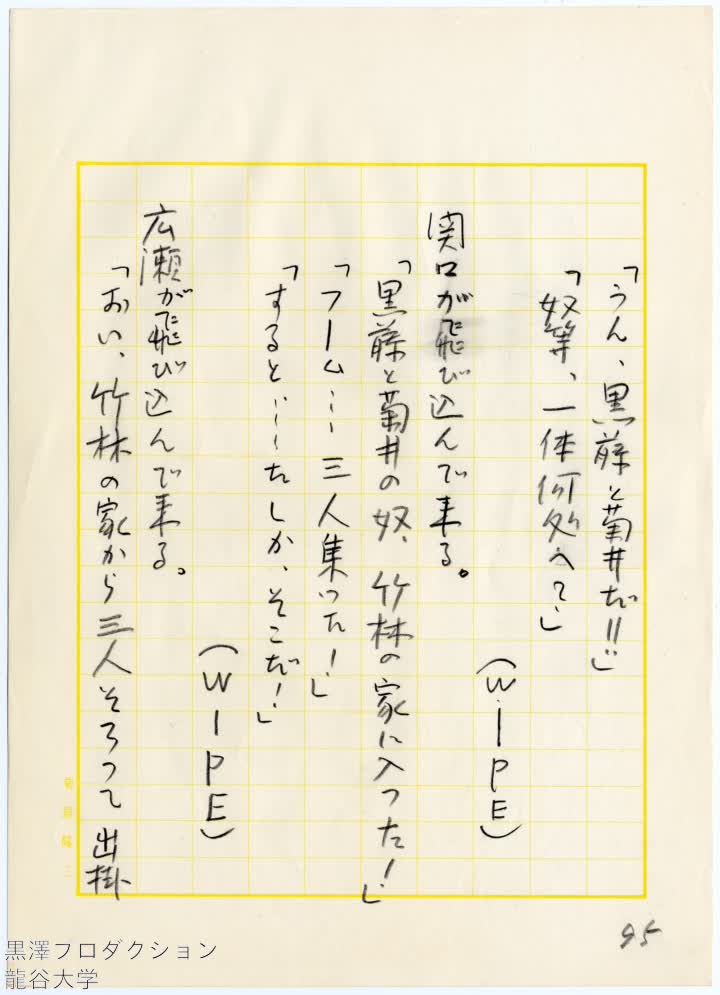 「うん、黒藤と菊井だ!!」
「奴等、一体何処へ？」
（WIPE）
関口が飛び込んで来る。
「黒藤と菊井の奴、竹林の家に入った！」
「フーム…三人集った！」
「すると……たしか、そこだ！」
（WIPE）
広瀬が飛び込んで来る。
「おい、竹林の家から三人そろって出掛
95
黒澤プロダクション
龍谷大学